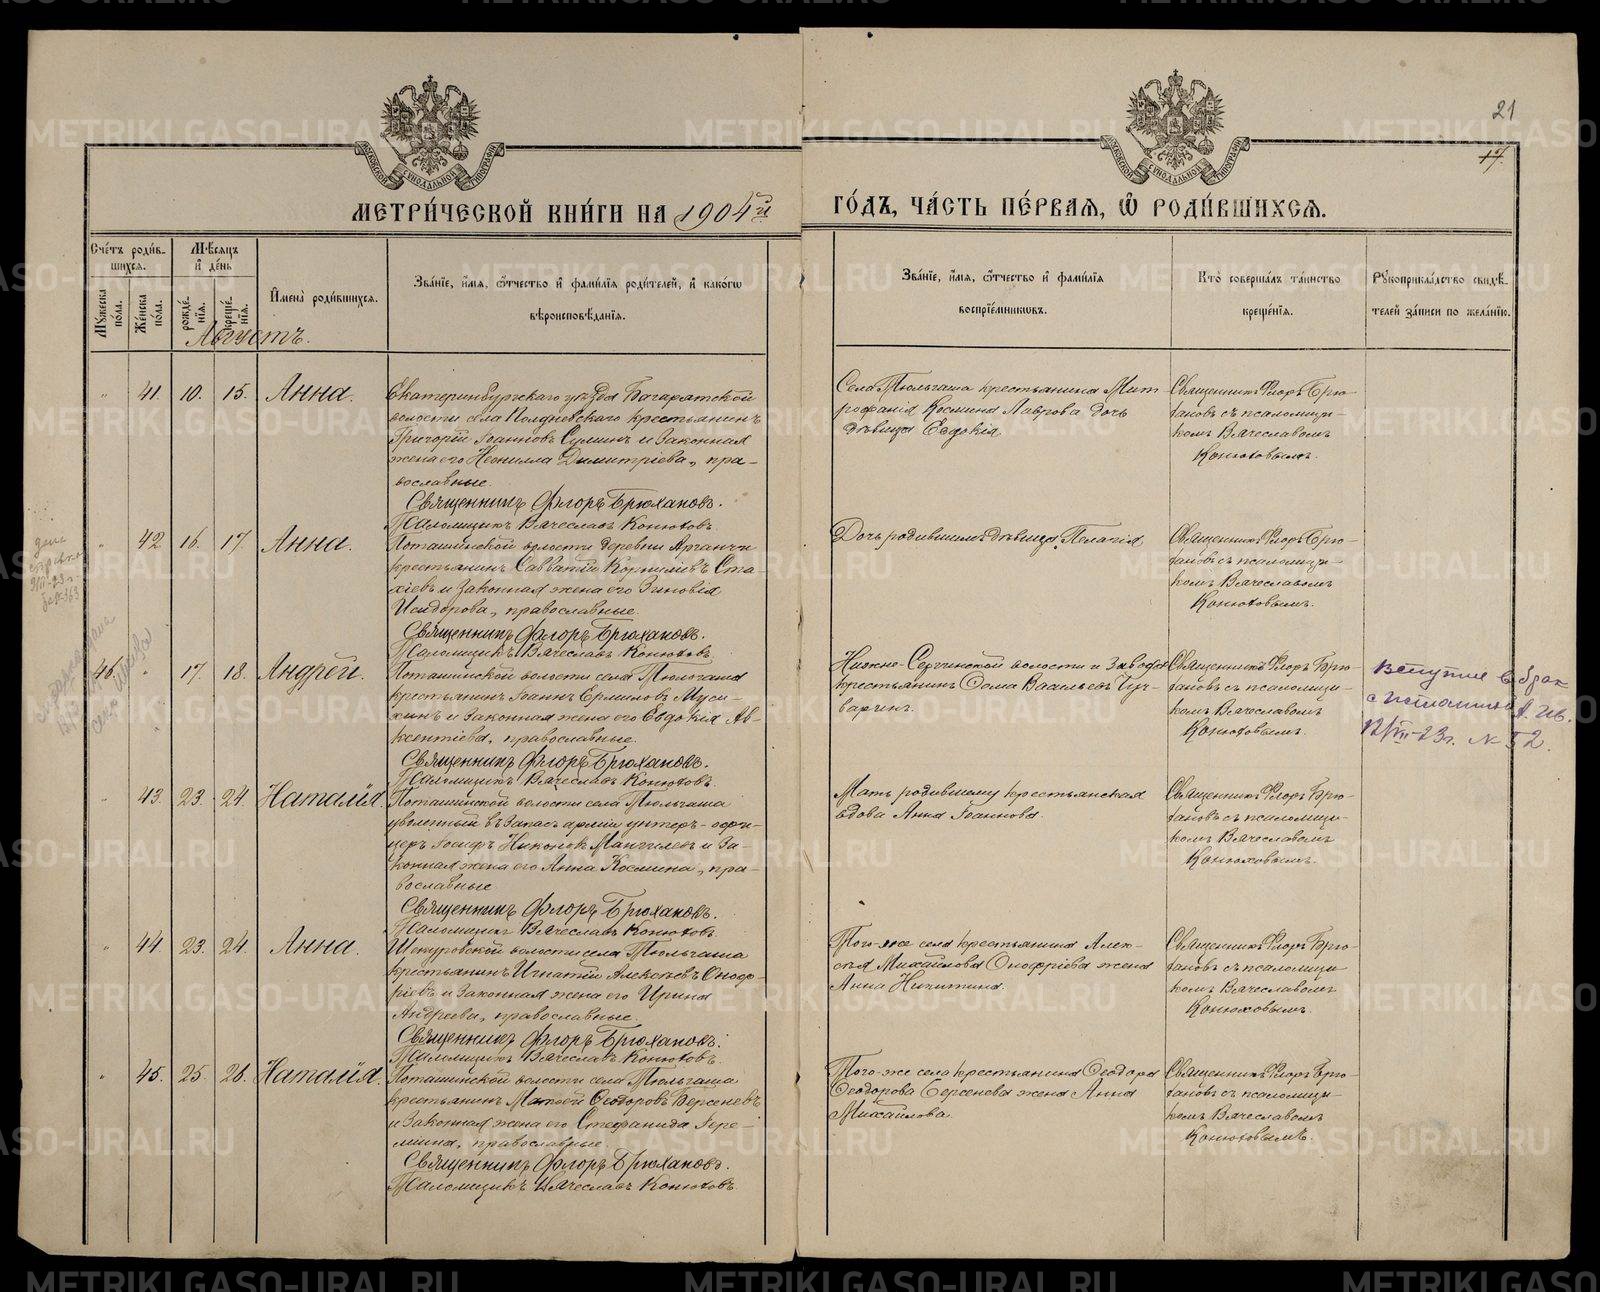 21
17.
МЕТРИ́ЧЕСКОЙ КНИ́ГИ НА 1904й
ГО́ДЪ, ЧА́СТЬ ПЕ́РВАѦ, Ѽ РОДИ́ВШИХСѦ.
Сче́тъ роди́вшихсѧ.
Мѣ́сѧцъ и҆ де́нь
И҆мена̀ роди́вшихсѧ.
Зва́нїе, и҆́мѧ, ѻ҆́тчество и҆ фами́лїѧ роди́телей, и҆ како́гѡ
вѣроисповѣ́данїѧ.
Зва́нїе, и҆́мѧ, ѻ҆́тчество и҆ фами́лїѧ
воспрїе́мникѡвъ.
Кто̀ соверша́лъ та́инство
креще́нїѧ.
Рꙋкоприкла́дство свидѣ́-
телей за́писи по жела́нїю.
Мꙋ́жеска по́ла.
Же́нска по́ла.
рожде́нїѧ.
креще́нїѧ.
Августъ.
" 41. 10. 15. Анна.
Екатеринбургскаго уѣзда Багарякской
волости села Полдневскаго крестьянинъ
Григорій Іоанновъ Сулинъ и законная
жена его Неонилла Димитріева, пра-
вославные.
Священникъ Флоръ Брюхановъ.
Псаломщикъ Вячеславъ Конюховъ.
Села Тюльгаша крестьянина Мит
рофанія Космина Лаврова дочь
дѣвица Евдокія.
Священникъ Флоръ Брю-
хановъ съ псаломщи-
комъ Вячеславомъ
Конюховымъ.
" 42 16. 17. Анна.
Поташинской волости деревни Арганчи
крестьянинъ Савватій Корниліевъ Ста-
хіевъ и законная жена его Зиновія
Исидорова, православные.
Священникъ Флоръ Брюхановъ.
Псаломщикъ Вячеславъ Конюховъ.
Дочь родившимъ дѣвица Пелагія
Священникъ Флоръ Брю-
хановъ съ псаломщи-
комъ Вячеславомъ
Конюховымъ.
46. " 17. 18. Андрей.
Поташинской волости села Тюльгаша
крестьянинъ Іоаннъ Ермиловъ Муси-
хинъ и законная жена его Евдокія Ав-
ксентіева, православные.
Священникъ Флоръ Брюхановъ.
Псаломщикъ Вячеславъ Конюховъ.
Нижне-Сергинской волости и завода
крестьянинъ Ѳома Васильевъ
варчинъ.
Священникъ Флоръ Брю-
хановъ съ псаломщи-
комъ Вячеславомъ
Конюховымъ.
Вступил в брак
с
23г. № 52.
" 43. 23. 24. Наталія.
Поташинской волости села Тюльгаша
уволенный въ запасъ арміи унтеръ-офи-
церъ Іосифъ Никоновъ Мангилевъ и за-
конная жена его Анна Космина, пра-
вославные
Священникъ Флоръ Брюхановъ.
Псаломщикъ Вячеславъ Конюховъ.
Мать родившему крестьянская
вдова Анна Іоаннова.
Священникъ Флоръ Брю-
хановъ съ псаломщи-
комъ Вячеславомъ
Конюховымъ.
" 44. 23. 24. Анна.
Шокуровской волости села Тюльгаша
крестьянинъ Игнатій Алексѣевъ Оноф-
ріевъ и законная жена его Ирина
Андреева, православные.
Священникъ Флоръ Брюхановъ.
Псаломщикъ Вячеславъ Конюховъ.
Того-же села крестьянина Алек-
сѣя Михайлова Онофріева жена
Анна Никитина.
Священникъ Флоръ Брю-
хановъ съ псаломщи-
комъ Вячеславомъ
Конюховымъ.
" 45. 25. 26. Наталія.
Поташинской волости села Тюльгаша
крестьянинъ Матѳей Ѳеодоровъ Берсеневъ
и законная жена его Стефанида Іере-
міина, православные.
Священникъ Флоръ Брюхановъ.
Псаломщикъ Вячеславъ Конюховъ.
Того-же села крестьянина Ѳеодора
Ѳеодорова Берсенева жена Анна
Михайлова.
Священникъ Флоръ Брю-
хановъ съ псаломщи-
комъ Вячеславомъ
Конюховымъ.
METRIKI.GASO-URAL.RU